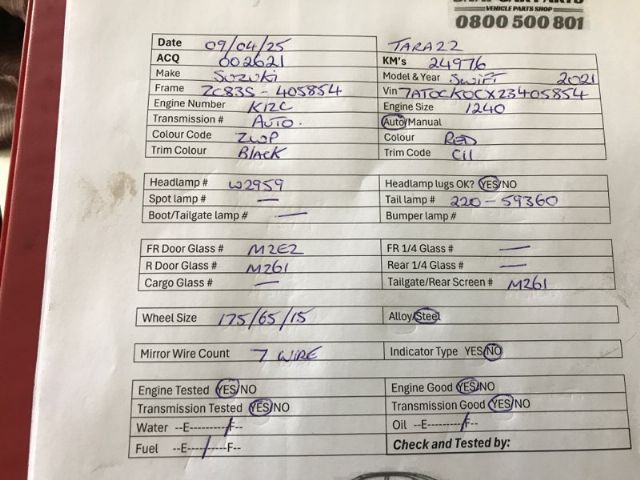 VEHICLE PARTS SHOP
0800 500 801
Date 09/04/25 TARA22
ACQ 002621 KM's 24976
Make SUZUKI Model & Year SWIFT 2021
Frame ZC83S - 405854 Vin 7AT0CK0CX23405854
Engine Number K12C Engine Size 1240
Transmission # AUTO. Auto/Manual
Colour Code ZWP Colour RED
Trim Colour BLACK Trim Code C11
Headlamp # W2959 Headlamp lugs OK? YES/NO
Spot lamp # — Tail lamp # 220-59360
Boot/Tailgate lamp # — Bumper lamp #
FR Door Glass # M2E2 FR 1/4 Glass # —
R Door Glass # M261 Rear 1/4 Glass # —
Cargo Glass # — Tailgate/Rear Screen # M261
Wheel Size 175/65/15 Alloy/Steel
Mirror Wire Count 7 WIRE Indicator Type YES/NO
Engine Tested YES/NO Engine Good YES/NO
Transmission Tested YES/NO Transmission Good YES/NO
Water --E----------/F-- Oil --E----------/F--
Fuel --E----/-----F-- Check and Tested by: